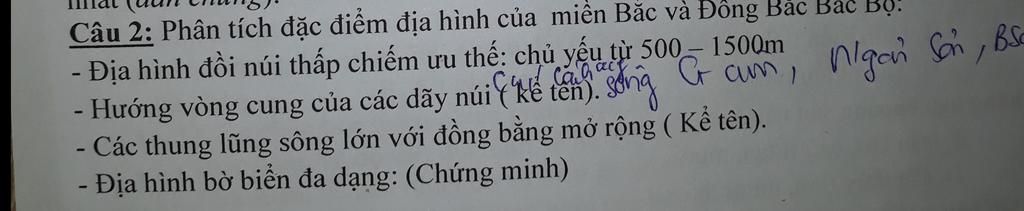 nhất (dẫn chứng).
Câu 2: Phân tích đặc điểm địa hình của miền Bắc và Đông Bắc Bắc Bộ:
- Địa hình đồi núi thấp chiếm ưu thế: chủ yếu từ 500 – 1500m
- Hướng vòng cung của các dãy núi ( kể tên). sông Gâm, Ngân Sơn, BSơ
- Các thung lũng sông lớn với đồng bằng mở rộng ( Kể tên).
- Địa hình bờ biển đa dạng: (Chứng minh)